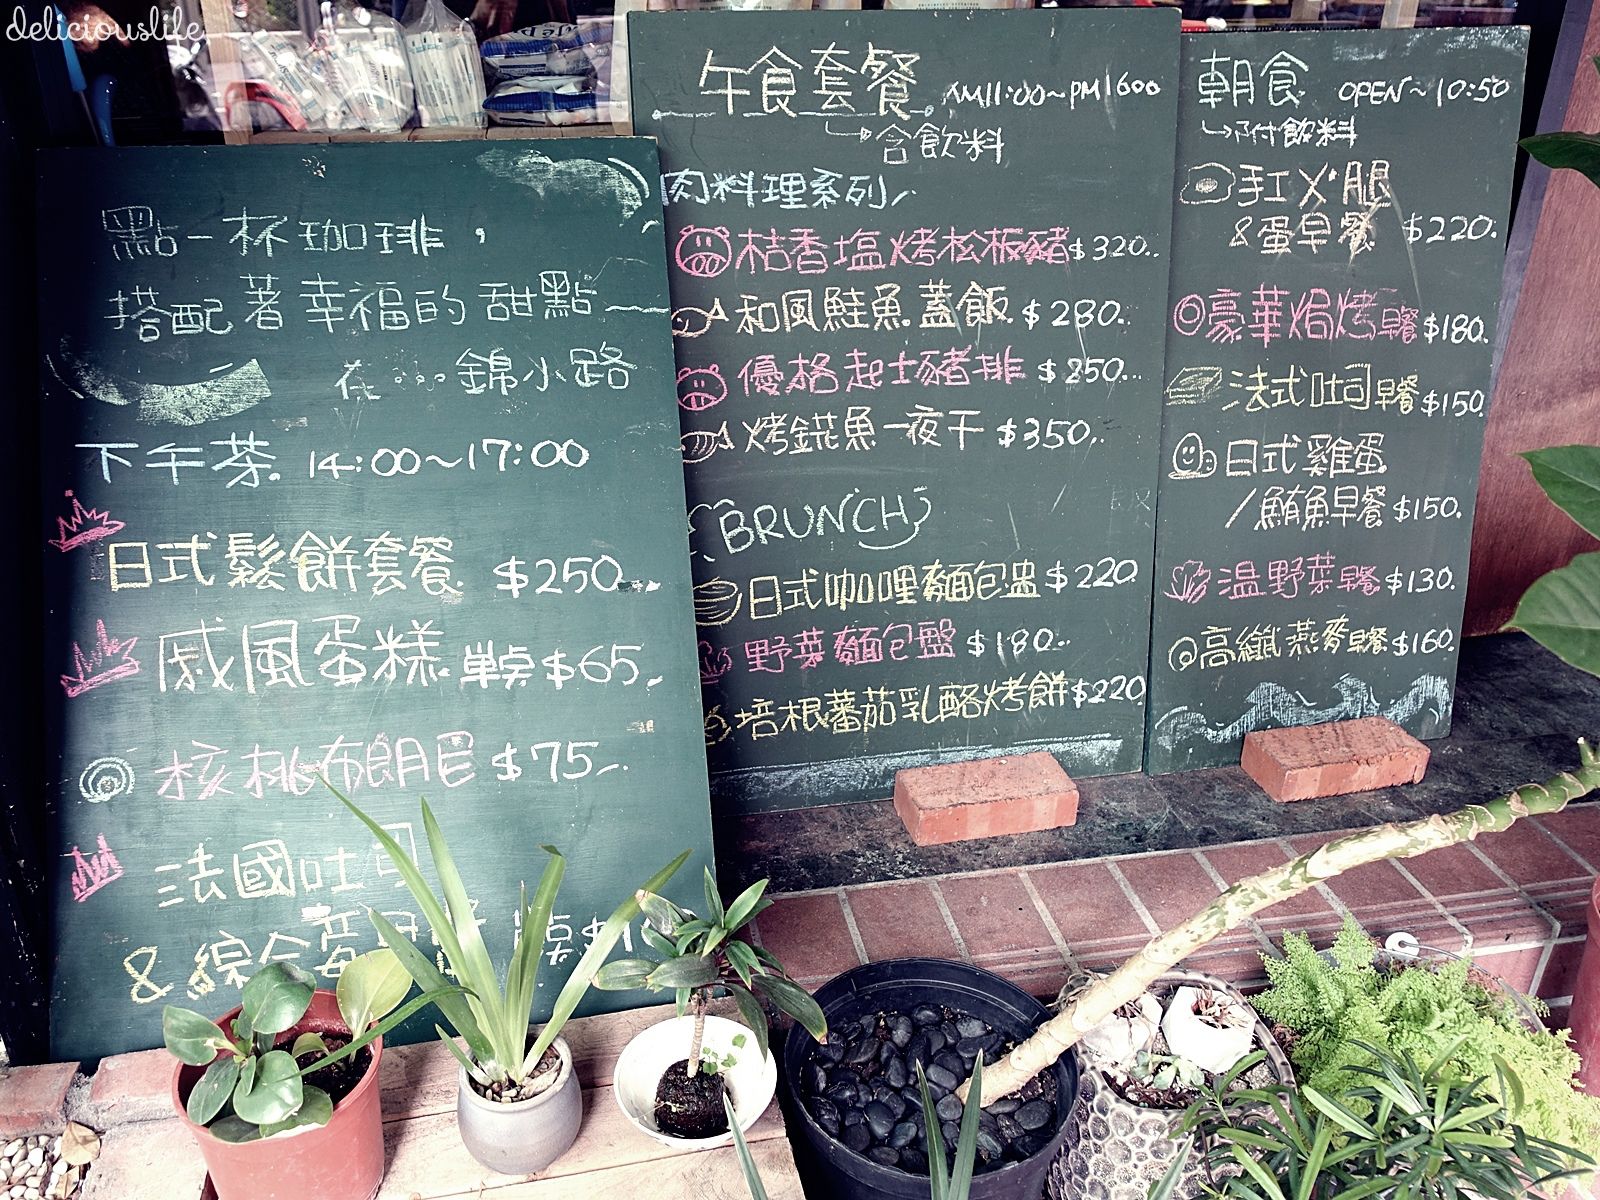 deliciouslife
點一杯珈琲，
搭配著幸福的甜點～
在...錦小路
下午茶 14:00～17:00
日式鬆餅套餐 $250
戚風蛋糕 單點 $65
核桃布朗尼 $75
法國吐司
&綜合
午食套餐 AM11:00～PM1600
含飲料
肉料理系列
桔香塩烤松板豬$320
和風鮭魚蓋飯 $280
優格起士豬排 $250
烤錵魚一夜干 $350
BRUNCH
日式咖哩麵包盅 $220
野菜麵包盤 $180
培根蕃茄乳酪烤餅$220
朝食 OPEN～10:50
附飲料
手工火腿
&蛋早餐 $220
豪華焗烤早餐$180
法式吐司早餐$150
日式雞蛋
/鮪魚早餐$150
温野菜早餐$130
高纖燕麥早餐$160